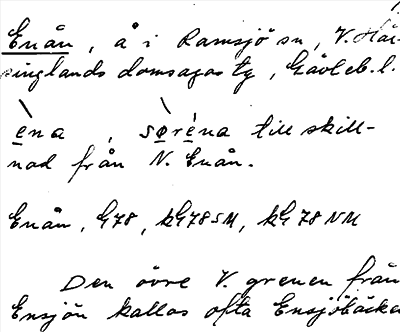 Enån, å i Ramsjö sn, V. Häl-
singlands domsagas tg, Gävleb. l.
èna, sørèna till skill-
nad från N. Enån.
Enån, G78, kG78SM, kG78NM
Den övre V. grenen från
Ensjön kallas ofta Ensjöbäcken